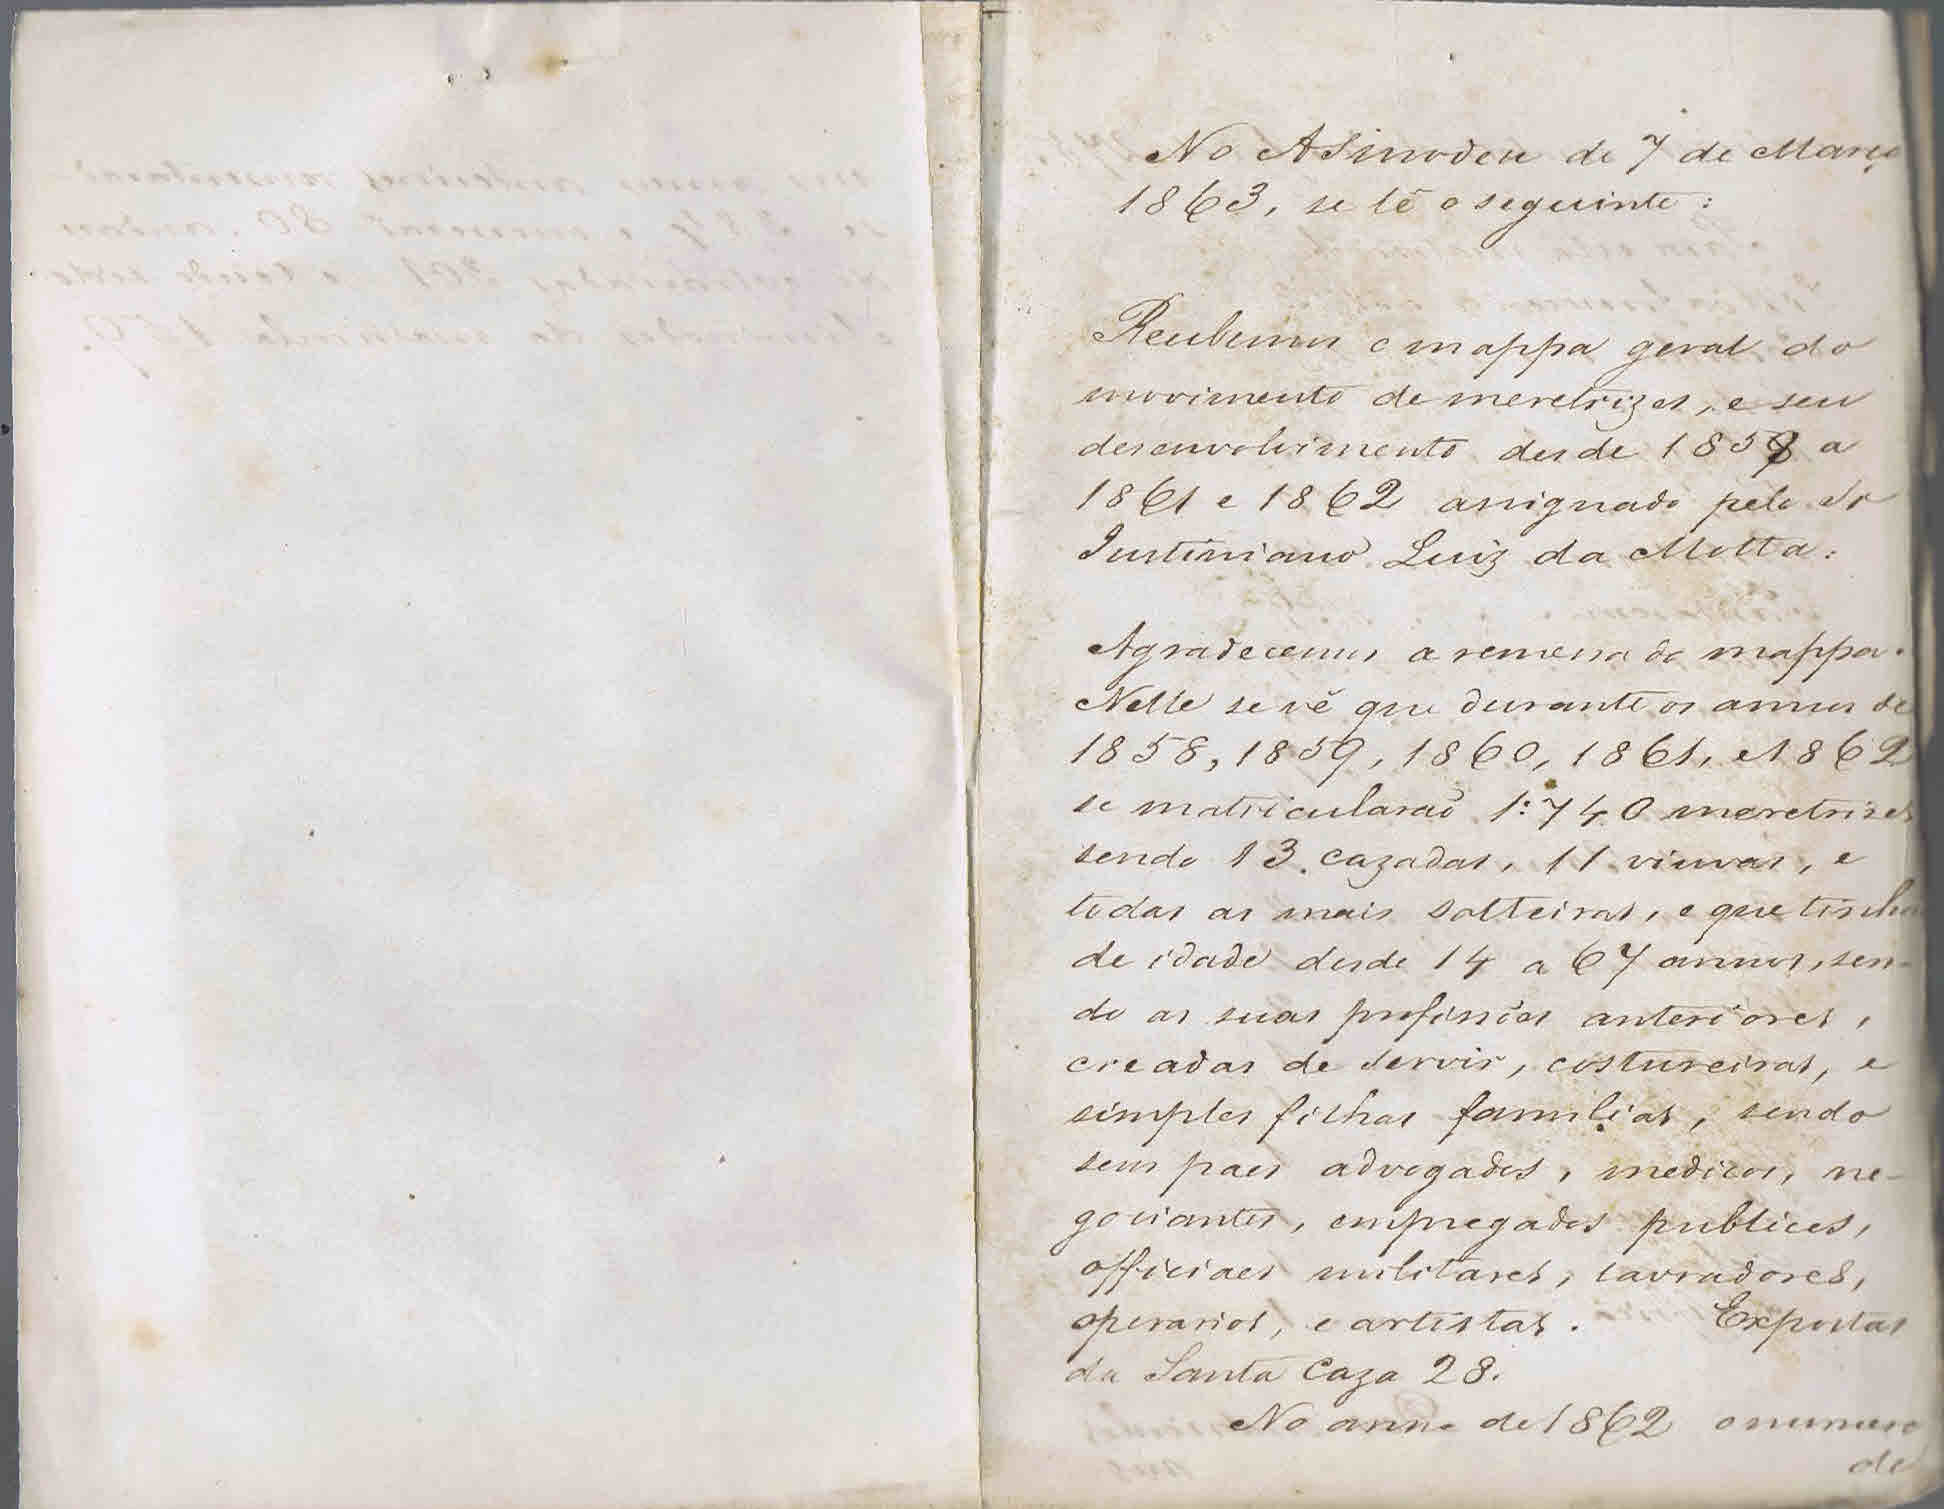 No Asmodeu de 7 de Março
1863, se lê o seguinte:
Recebemos o mappa geral do
movimento de meretrizes, e seu
desenvolvimento desde 1858 a
1861 e 1862 assignado pelo Sr
Justiniano Luiz da Motta:
Agradecemos a remessa do mappa.
Nelle se vê que durante os annos de
1858, 1859, 1860, 1861, e 1862
se matricularaõ 1:740 meretrizes
sendo 13 cazadas, 11 viuvas, e
todas as mais solteiras, e que tinhaõ
de idade desde 14 a 67 annos, sen-
do as suas profissões anteriores,
creadas de servir, costureiras, e
simples filhas familias, sendo
seus paes advogados, medicos, ne-
gociantes, empregados publicos,
officiaes militares, lavradores,
operarios, e artistas. Expostas
da Santa Caza 28.
No anno de 1862 o numero
de